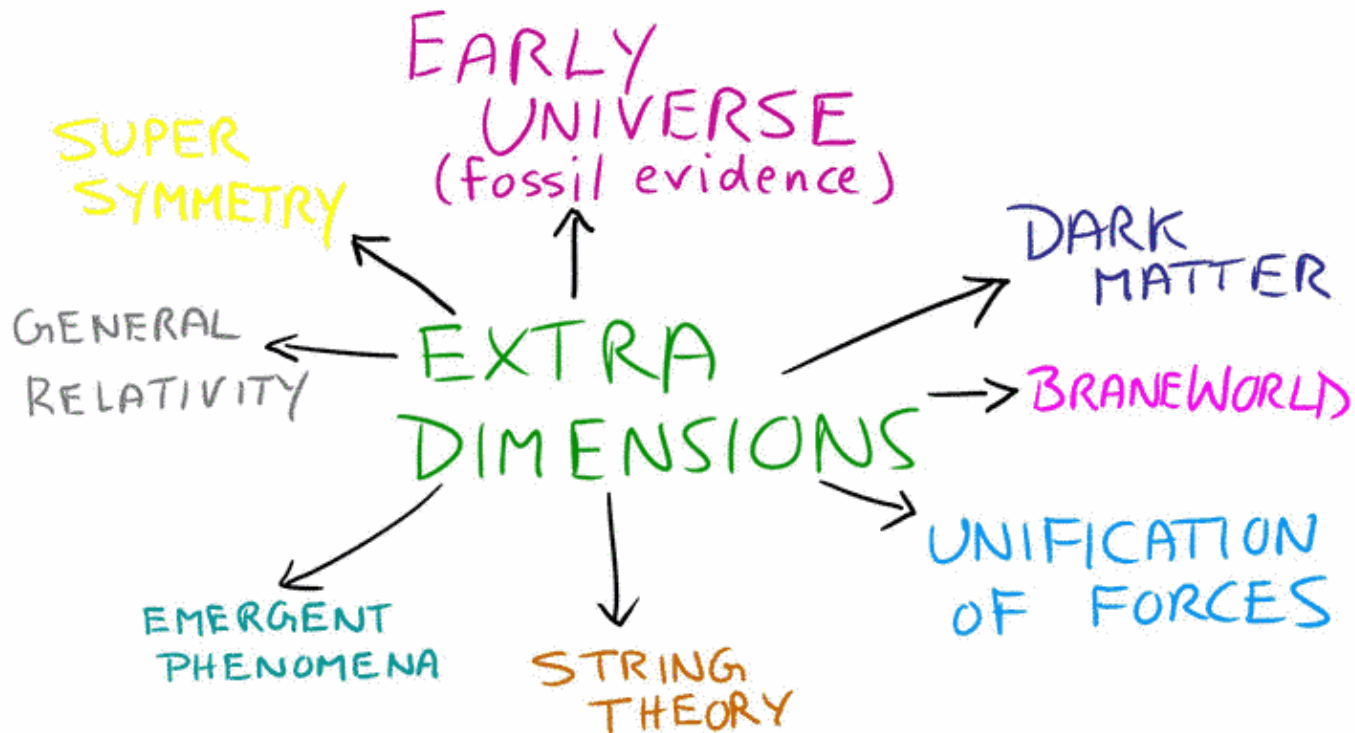 EARLY
UNIVERSE
(fossil evidence)
SUPER
SYMMETRY
DARK
MATTER
GENERAL
RELATIVITY
EXTRA
DIMENSIONS
BRANEWORLD
UNIFICATION
OF FORCES
EMERGENT
PHENOMENA
STRING
THEORY